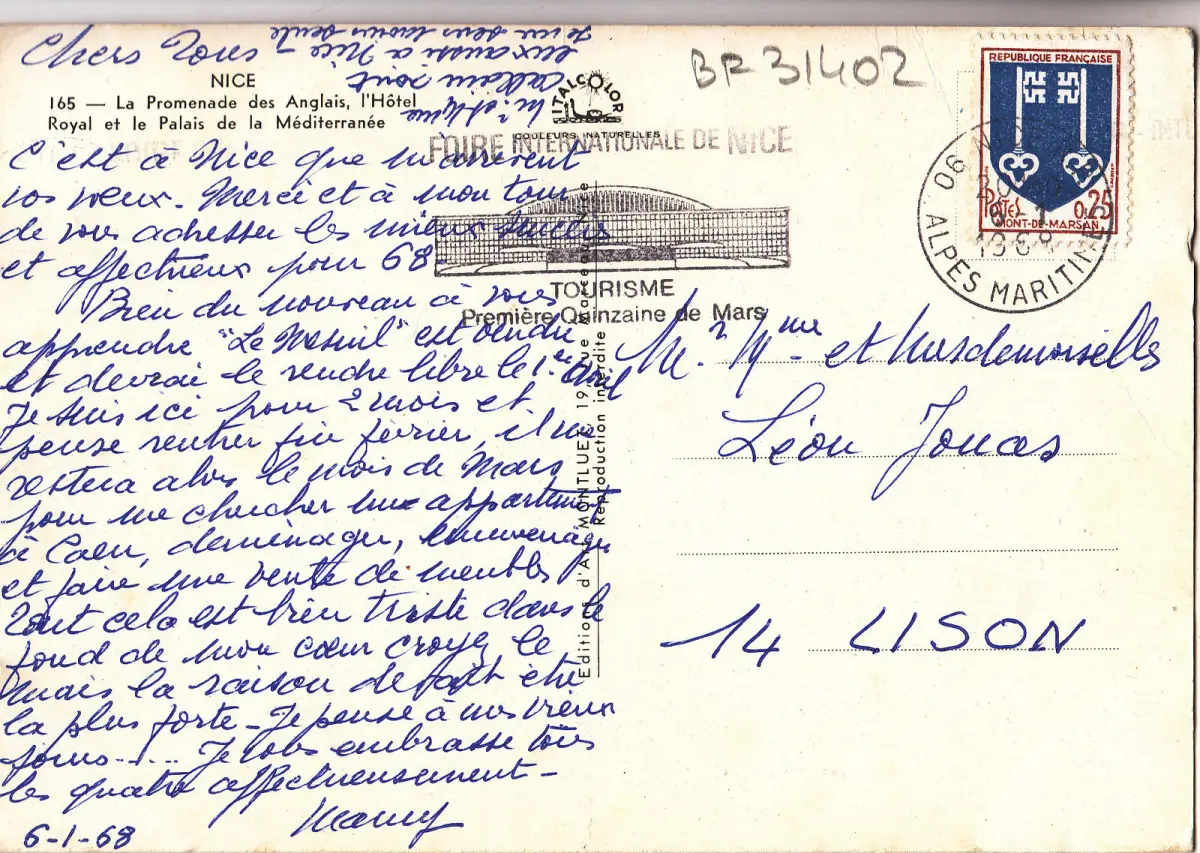 Chers Tous
NICE
165 — La Promenade des Anglais, l'Hôtel
Royal et le Palais de la Méditerranée
ITALCOLOR
COULEURS NATURELLES
eux aussi à Nice
je me sens moins seule
C'est à Nice que m'arrivent
vos vœux. Merci et à mon tour
de vous adresser les mieux
et affectueux pour 68
Bien du nouveau à vous
apprendre "Le Mesnil" est vendu
et devrai le rendre libre le 1er Avril
Je suis ici pour 2 mois et
pense rentrer fin février, il me
restera alors le mois de Mars
pour me chercher un appartement
à Caen, deménager, emmenager
et faire une vente de meubles
Tout cela est bien triste dans le
fond de mon cœur croyez le
mais la raison devait être
la plus forte - Je pense à nos vieux
jours..... Je vous embrasse tous
les quatre affectueusement -
Mamy
6-1-68
Reproduction interdite
BR 31402
FOIRE INTERNATIONALE DE NICE
TOURISME
Première Quinzaine de Mars
REPUBLIQUE FRANÇAISE
POSTES
0,25
MONT-DE-MARSAN
06 NICE
1968
ALPES MARITIMES
Mr Mme et Mesdemoiselles
Léon Jouas
14 LISON